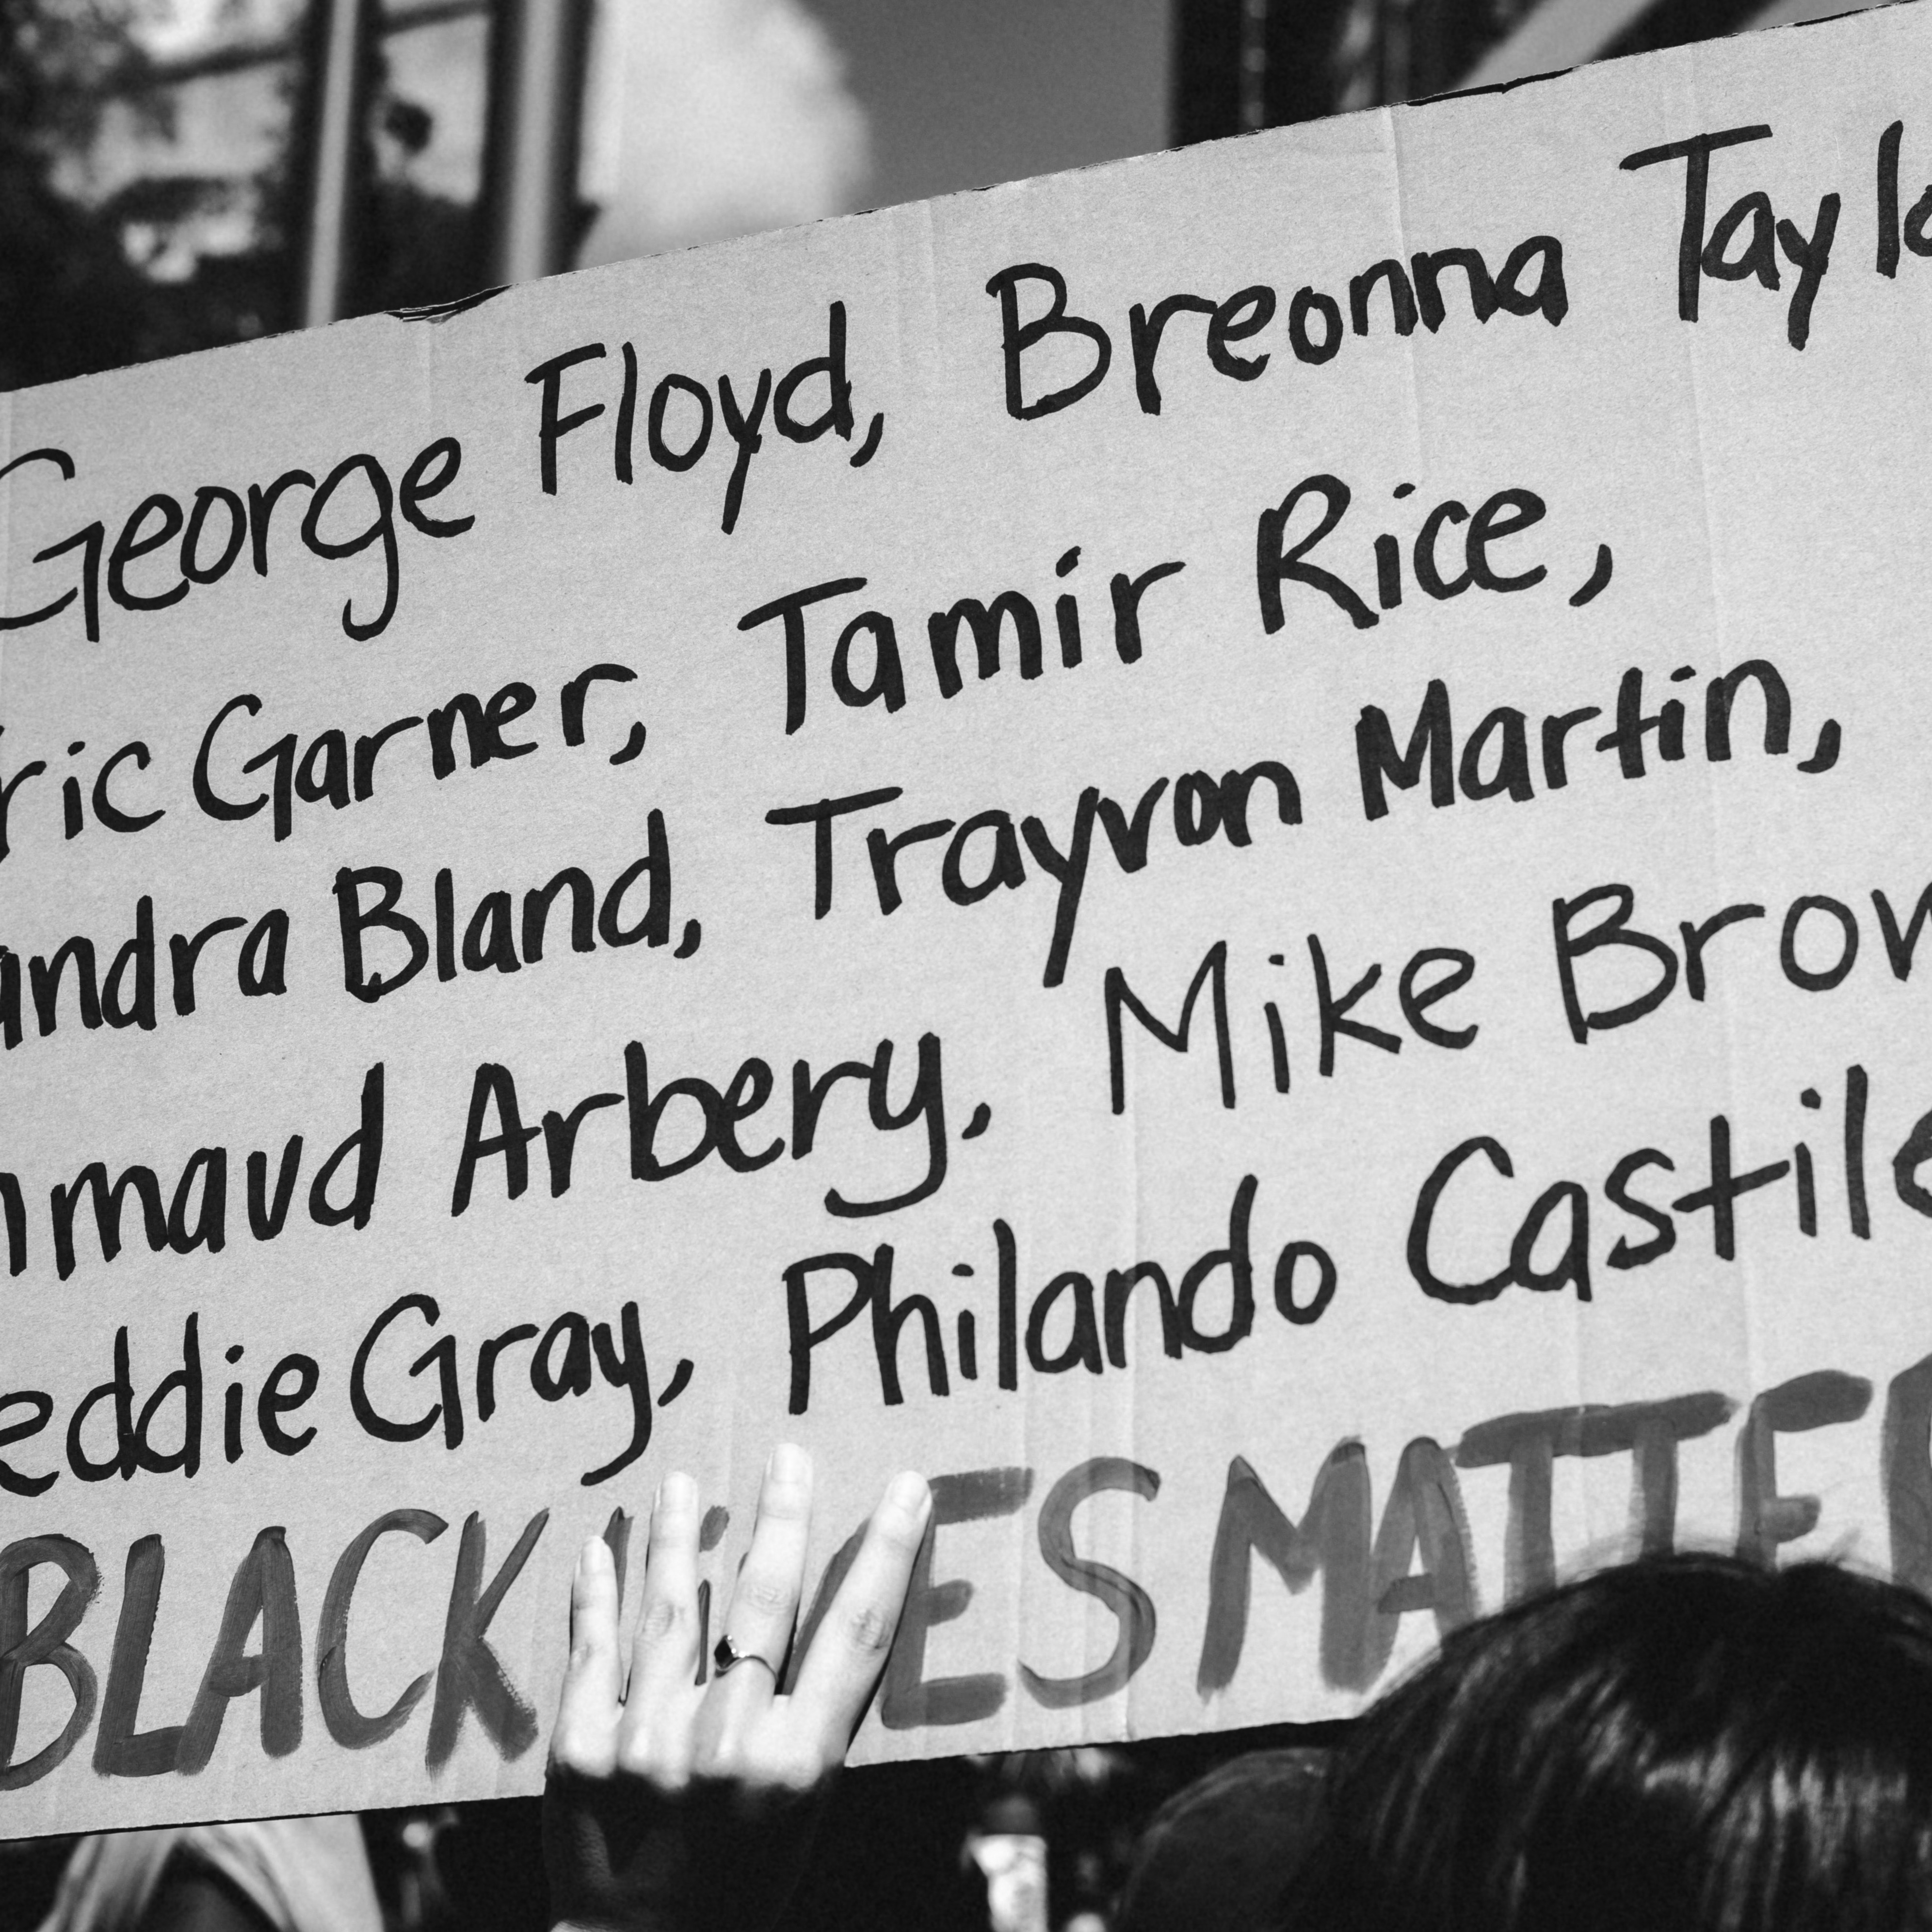 George Floyd, Breonna Taylo
ric Garner, Tamir Rice,
andra Bland, Trayvon Martin,
hmaud Arbery, Mike Brow
eddie Gray, Philando Castile
BLACK LiVES MATTER